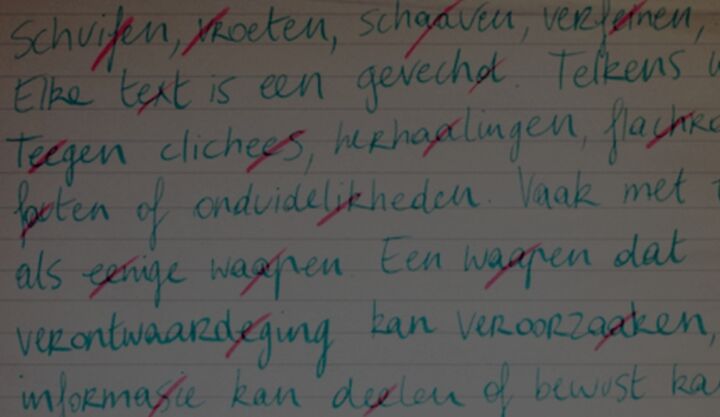 Schuifen, vroeten, schaaven, verfeinen,
Elke text is een gevechd. Telkens
Teegen clichees, herhaalingen,
foten of onduidelikheden. Vaak met
als eenige waapen. Een waapen dat
verontwaardeging kan veroorzaaken,
informasie kan deelen of bewust